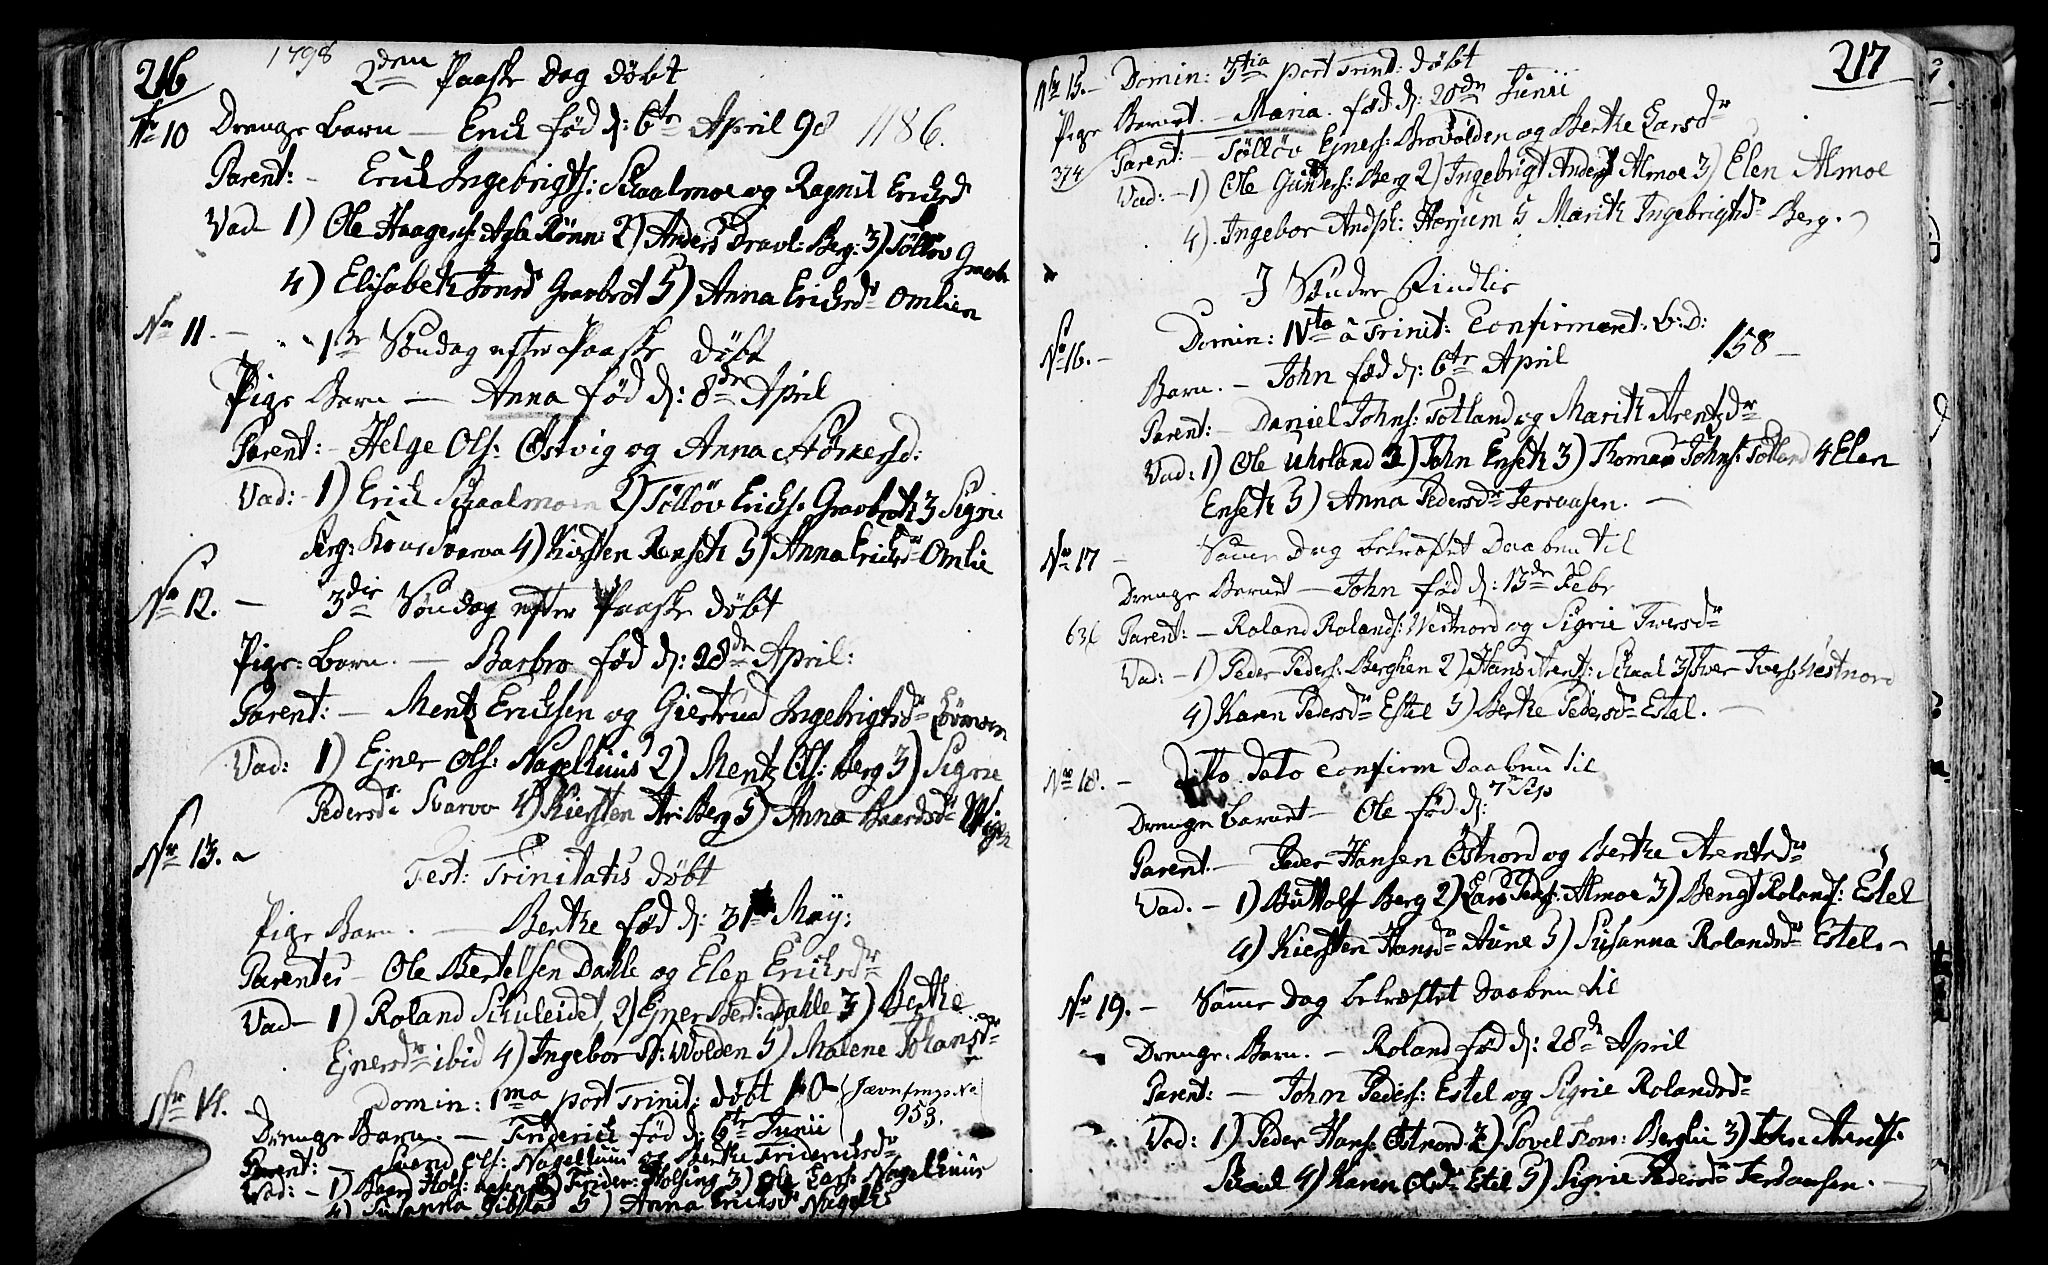 216
1798
2den Paaske Dag døbt
No 10 Drenge Barn — Erich fød d: 6te April 98 1186.
Parent: - Erich Ingebrigts: Skaalmoe og Ragnil Erichsd
Vad- 1) Ole Haagens: Agle Rönn: 2) Anders Dravl: Berg: 3) Tölløv Gravb
4) Elisabeth Jonsdr Gravbrot 5) Anna Erichsdr Omlien
No 11. - 1ste Søndag efter Paaske døbt
Pige Barn — Anna fød d: 8de April
Parent: - Helge Ols: Østvig og Anna
Vad: - 1) Erich Skaalmoen 2) Tölløv Erichs: Gravbrot 3 Sigri
4) Kirsten Renseth 5) Anna Erichsdr Omlie
No 12. - 3die Søndag efter Paaske døbt
Pige: Barn. — Barbro fød d: 28de April:
Parent: — Mentz Erichsen og Giertrud Ingebrigtsdr
Vad: 1) Ejner Ols: Nagelhuus 2) Mentz Ols: Berg 3) Sigrie
Pedersdr Svarvo 4) Kiersten Ar: Berg 5) Anna Baardsdr
No 13.
Fest: Trinitatis døbt
Pige Barn. — Berthe fød d: 31te May:
Parentes - Ole Bertelsen Dahle og Elen Erichsdr
Vad- 1) Roland Schuleidet, 2) Ejner Bert: Dahle 3) Berthe
Ejnersdr ibid 4) Ingebor N: Wolden 5) Malene Johansdr
No 14. Domin: 1ma post Trinit: døbt (Jævnfør No 953.
Drenge Barn. — Friderich fød d: 6te Junii
Parent: - Svend Ols: Nagelhuus og Berthe Friderichsdr
Vad: - 1) Baard Hols: 2) Frider: Holsing 3) Ole Lars: Nagelhuus
4) Susanna Gibstad 5) Anna Erichsdr Nagelh:
217
No 15. - Domin: 3tia post Trinit: døbt
Pige Barnet. - Maria. fød d: 20de Junii
374 Parent: - Tölløv Ejners: Brovolden og Berthe Larsdr
Vad: - 1) Ole Gunders: Berg 2) Ingebrigt Anders Almoe 3) Elen Almoe
4). Ingebor Andfl: Horjum 5 Marith Ingebrigtsdr Berg.
I Søndre Findlie
No 16. - Domin: IVta a Trinit: Confirment: b: D:
158 -
Barn. - John fød d: 6te April
Parent: - Daniel Johns: Totland og Marith Arentsdr
Vad: 1) Ole Uhrland 2) John Enseth 3) Thomas Johns: Totland 4 Elen
Enseth 5) Anna Pedersdr Terraasen. -
No 17 - Samme Dag bekræftet Daaben til
Drenge Barnet - John fød d: 13de Febr
636 Parent: - Roland Rolands: Westnord og Sigrie Iversdr
Vad: - 1) Peder Peders: Berglien 2) Hans Arents: Skaal 3) Iver Ivers: Westnord
4) Karen Pedersdr Estel 5) Berthe Pedersdr Estel. -
No 18. - Ditto Dato Confirm Daaben til
Drenge Barnet - Ole fød d: 7 Sep
Parent. - Peder Hansen Østnord og Berthe Arentsdr
Vad. - 1) Buttolf Berg 2) Lars Peders: Almoe 3) Bengt Rolands: Estel
4) Kiersten Hansdr Aune 5) Susanna Rolandsdr Estel. -
No 19. - Samme Dag bekræftet Daaben til
Drenge: Barn. - Roland fød d: 28de April
Parent: - John Peders: Estel og Sigrie Rolandsdr
Vad: 1) Peder Hans: Østnord 2) Povel Berglie 3) John Arents:
Skaal 4) Karen Olsdr Estel 5) Sigrie Pedersdr Terraasen. -